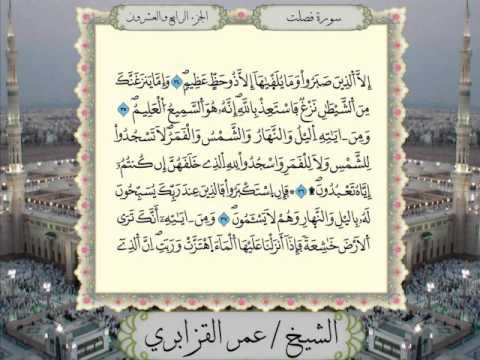 سورة فصلت
الجزء الرابع والعشرون
إِلَّا اَلذِينَ صَبَرُواْ وَمَا يُلَقَّيٰهَا إِلَّا ذُو حَظٍّ عَظِيمٖ ٣٤ وَإِمَّا يَنزَغَنَّكَ
مِنَ اَلشَّيْطَٰنِ نَزْغٞ فَاسْتَعِذْ بِاللَّهِ إِنَّهُۥ هُوَ اَلسَّمِيعُ اُلْعَلِيمُ ٣٥
وَمِنَ اٰيَٰتِهِ اِليْلُ وَالنَّهَارُ وَالشَّمْسُ وَالْقَمَرُ لَا تَسْجُدُواْ
لِلشَّمْسِ وَلَا لِلْقَمَرِ وَاسْجُدُواْ لِلهِ اِلذِے خَلَقَهُنَّ إِن كُنتُمُۥ
إِيَّاهُ تَعْبُدُونَ ۩ ٣٦ فَإِنِ اِسْتَكْبَرُواْ فَالذِينَ عِندَ رَبِّكَ يُسَبِّحُونَ
لَهُۥ بِاليْلِ وَالنَّهَارِ وَهُمْ لَا يَسْـَٔمُونَ ٣٧ وَمِنَ اٰيَٰتِهِۦ أَنَّكَ تَرَى
اَلْأَرْضَ خَٰشِعَةٗ فَإِذَا أَنزَلْنَا عَلَيْهَا اَلْمَآءَ اَهْتَزَّتْ وَرَبَتِ اِنَّ اَلذِے
الشيخ / عمر القزابري